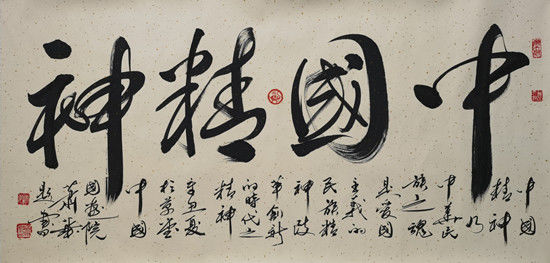 中國精神
中國
精神
乃
中華民
族之魂
愛國
主義的
民族精
神改
革創新
的時代之
精神
辛丑夏
於京
中國
國畫院
題書